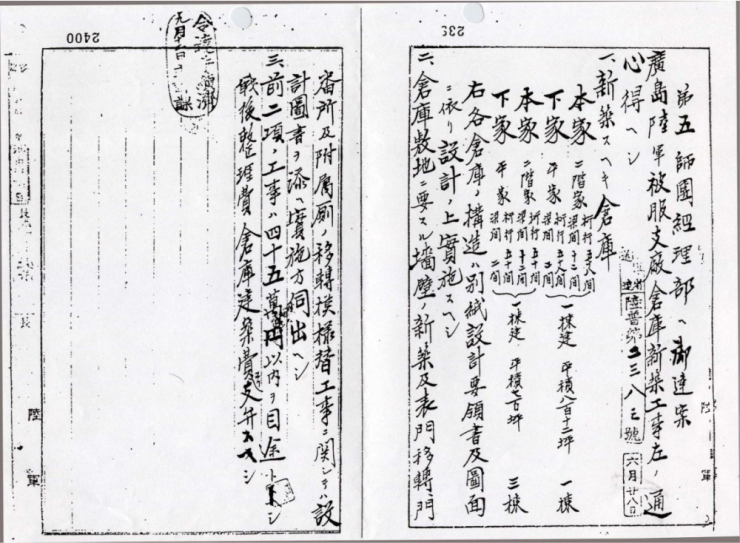 239
第五師團経理部ヘ御達案
送達 陸普第二三八三號 六月廿八日
廣島陸軍被服支廠倉庫新築工事左ノ通
心得ヘシ
一、新築スヘキ倉庫
本家 二階家 桁行五八間 梁間十二間
下家 平家 桁行五八間 梁間二間
一棟建 平積八百十二坪 一棟
本家 二階家 桁行五十間 梁間十二間
下家 平家 桁行五十間 梁間二間
一棟建 平積七百坪 三棟
右各倉庫ノ構造ハ別紙設計要領書及圖面
ニ依リ設計ノ上實施スヘシ
二、倉庫敷地ニ要スル墻壁ノ新築及表門移轉、門
陸軍
2400
番所及附属厠ノ移轉模様替工事ニ関シテハ設
計圖書ヲ添ヘ實施方伺出ヘシ
三、前二項ノ工事ハ四十五萬円以内ヲ目途トシ
戰後整理費倉庫建築費支弁スヘシ
令達 済
九月 日
陸軍